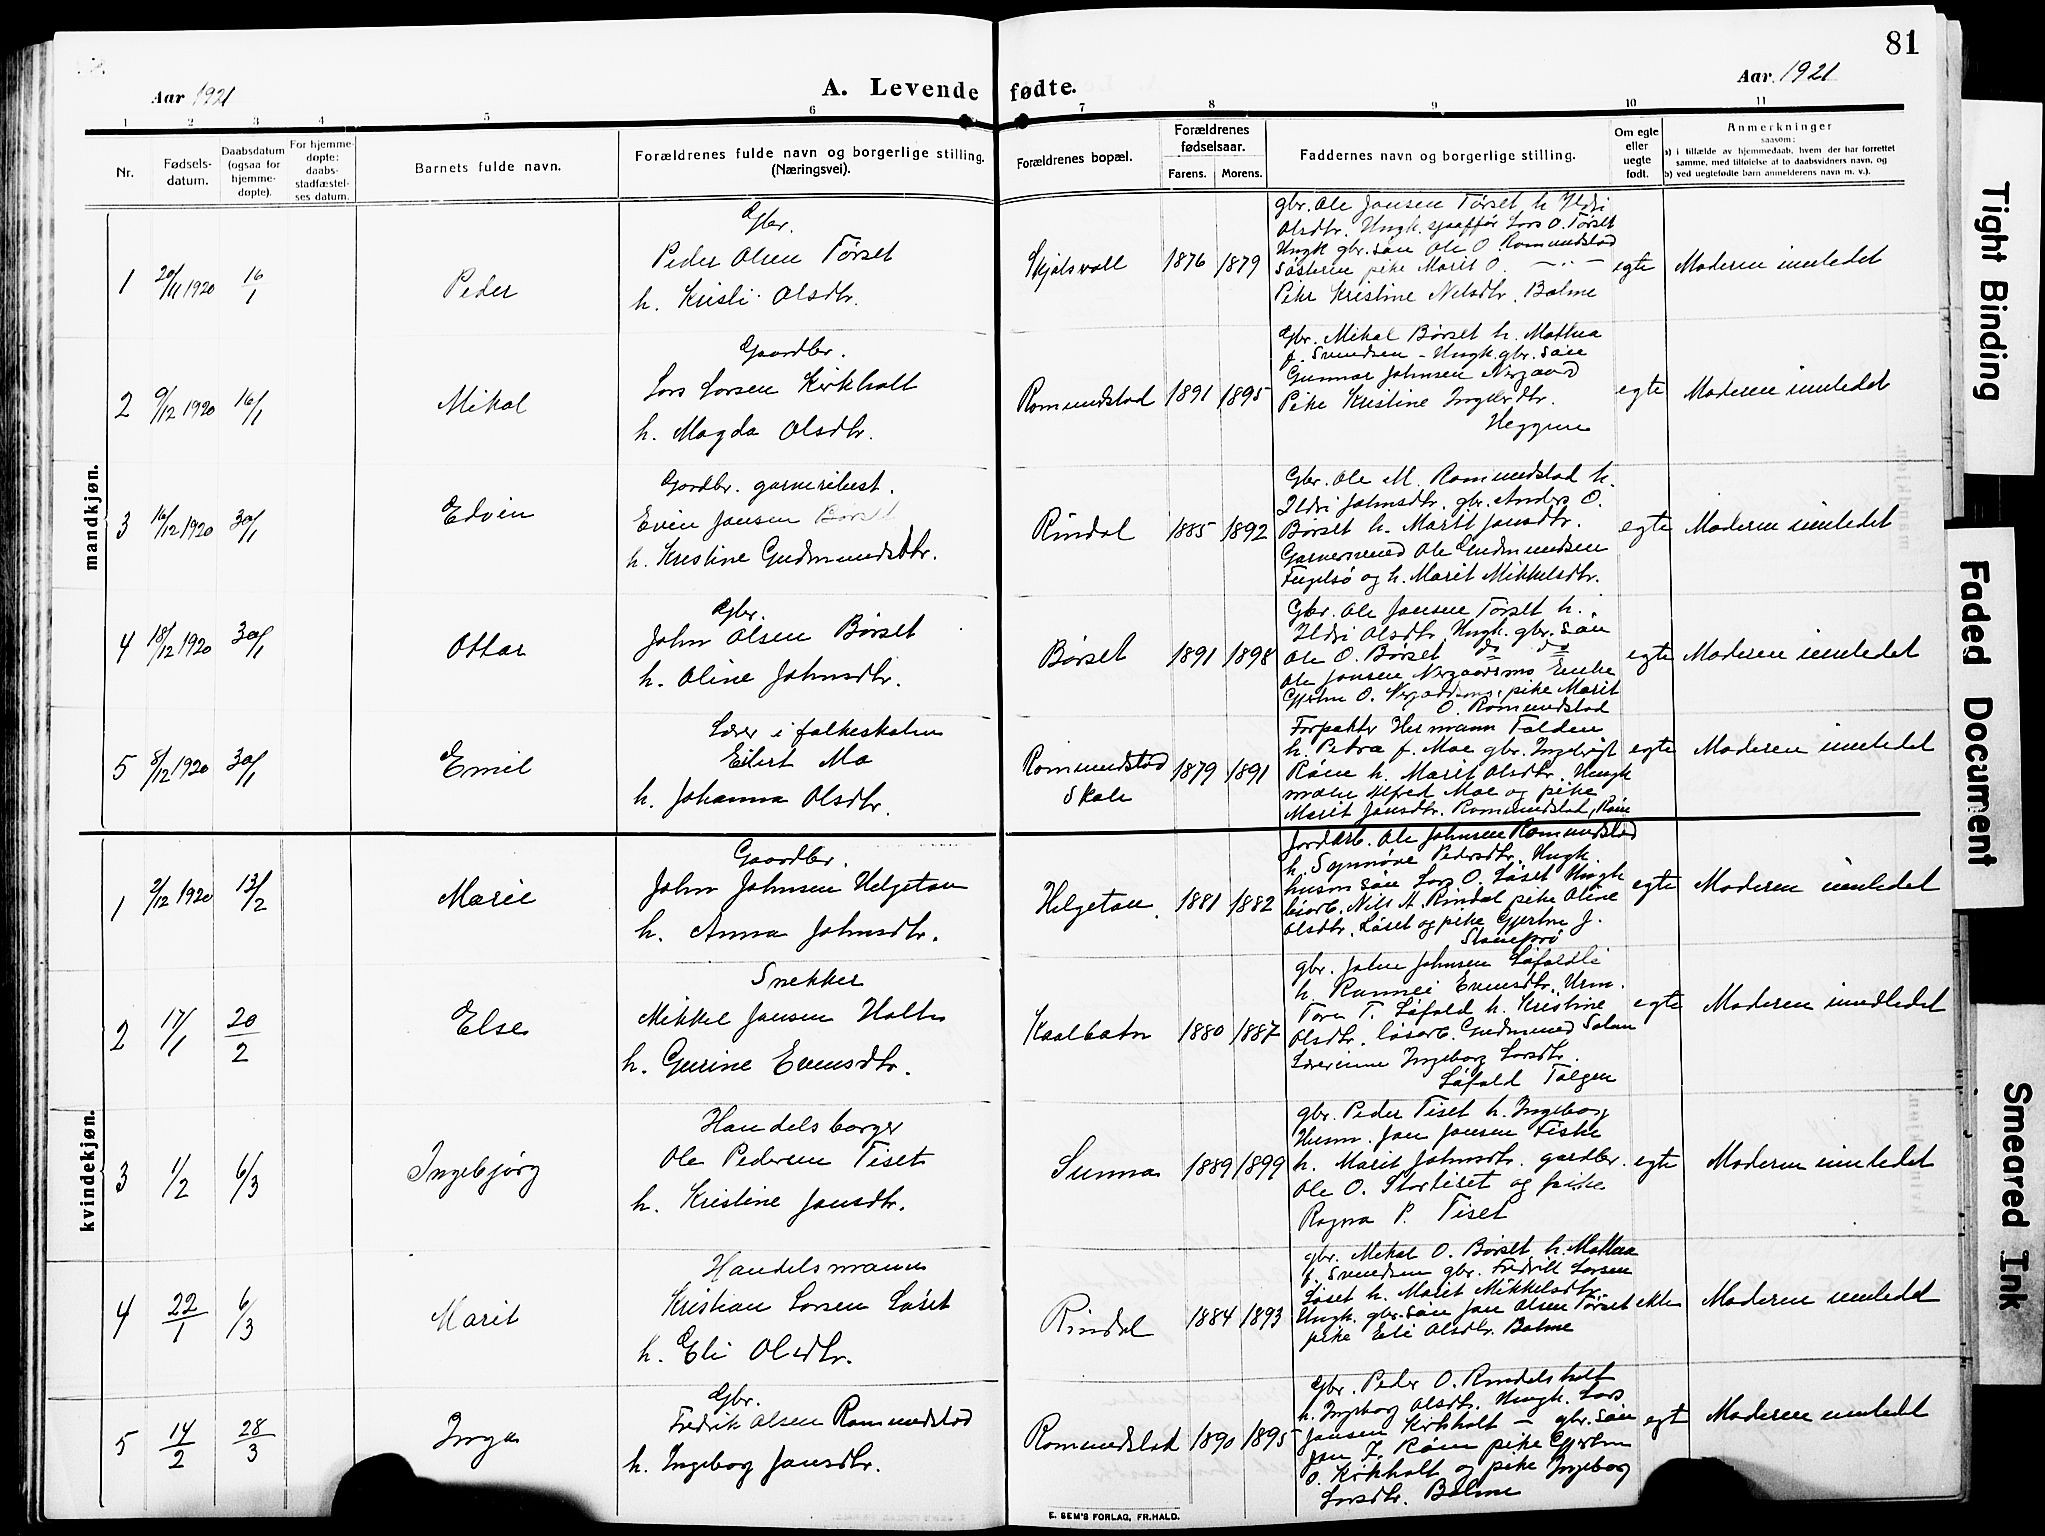 81
Aar 1921
A. Levende fødte.
Aar 1921
1 2 3 4 5 6 7 8 9 10 11
Nr.
Fødsels-
datum.
Daabsdatum
(ogsaa for
hjemme-
døpte).
For hjemme-
døpte:
daabs-
stadfæstel-
ses datum.
Barnets fulde navn.
Forældrenes fulde navn og borgerlige stilling.
(Næringsvei).
Forældrenes bopæl.
Forældrenes
fødselsaar.
Farens. Morens.
Faddernes navn og borgerlige stilling.
Om egte
eller
uegte
født.
Anmerkninger
saasom:
a) i tilfælde av hjemmedaab, hvem der har forrettet
samme, med tilføielse af to daabsvidners navn, og
b) ved uegtefødte barn anmelderens navn m. v.).
mandkjøn.
1 20/11 1920 16/1 Peder
Gbr.
Peder Olsen Tørset
h. Kristi Olsdtr.
Skjølsvoll 1876 1879
gbr. Ole Jansen Tørset h Ildri
Olsdtr. Ungk. sjaffør Lars O. Tørset
Ungk gbr. søn Ole O. Romundstad
Søsteren pike Marit O. — " —
Pike Kristine Nilsdtr. Bolme
egte Moderen innledet
2 9/12 1920 16/1 Mikal
Gaardbr.
Lars Larsen Kirkholt
h. Magda Olsdtr.
Romundstad 1891 1895
Gbr. Mikal Børset h. Mathea
f. Svendsen - Ungk. gbr. søn
Gunnar Johnsen Nergaard
Pike Kristine Ingebr.dtr.
Heggem
egte Moderen innledet
3 16/12 1920 30/1 Edvin
Gardbr. garveribest.
Even Jansen Børset
h. Kristine Gudmundsdtr.
Rindal 1885 1892
Gbr. Ole M. Romundstad h.
Ildri Johnsdtr. gbr. Anders O.
Børset h. Marit Jansdtr.
Garversvend Ole Gudmundsen
Fugelsø og h. Marit Mikkelsdtr.
egte Moderen innledet
4 18/12 1920 30/1 Ottar
Gbr.
John Olsen Børset
h. Oline Johnsdtr.
Børset 1891 1898
Gbr. Ole Jansen Tørset h.
Ildri Olsdtr. Ungk. gbr. søn
Ole O. Børset do do
Ole Jansen Nergaardsmo Enke
Gjertru O. Nergaardsmo, pike Marit
O. Romundstad
egte Moderen innledet
5 8/12 1920 30/1 Emil
Lærer i folkeskolen
Eilert Mo
h. Johanna Olsdtr.
Romundstad
Skole
1879 1891
Forpakter Hermann Folden
h. Petra f. Moe gbr. Ingebrigt
Røen h. Marit Olsdtr. Ungk
maler Alfred Moe og pike
Marit Jansdtr. Romundstad, Røen
egte Moderen innledet
kvindekjøn.
1 2/12 1920 13/2 Marie
Gaardbr.
John Johnsen Helgetun
h. Anna Johnsdtr.
Helgetun 1881 1882
Jordarb. Ole Johnsen Romundstad
h. Synnøve Pedersdtr. Ungk.
husm søn Lars O. Løset Ungk
løsarb. Nils A. Rindal pike Oline
Olsdtr. Løset og pike Gjertru J.
egte Moderen innledet
2 17/1 20/2 Else
Snekker
Mikkel Jansen Holte
h. Gurine Evensdtr.
Kaalbotn 1880 1887
gbr. John Johnsen Løfaldli
h. Rannei Evensdtr. Urm.
Tore T. Løfald h. Kristine
Olsdtr. løsarb. Gudmund
Lærerinne Ingeborg Larsdtr.
Løfald Tolgen
egte Moderen inndledet
3 1/2 6/3 Ingebjørg
Handelsborger
Ole Pedersen Tiset
h. Kristine Jansdtr.
Sunna 1889 1899
gbr. Peder Tiset h. Ingeborg
Husm. Jan Jansen Fiske
h. Marit Johnsdtr. gardbr.
Ole O. Stortiset og pike
Ragna P. Tiset
egte Moderen innledet
4 22/1 6/3 Marit
Handelsmann
Kristian Larsen Løset
h. Eli Olsdtr.
Rindal 1884 1893
gbr. Mikal O. Børset h. Mathea
f. Svendsen gbr. Fredrik Larsen
Løset h. Marit Mikkelsdtr.
Ungk. gbr. søn Jan Olsen Tørset
pike Eli Olsdtr. Bolme
ekte Moderen innledet
5 14/2 28/3 Inga
Gbr.
Fredrik Olsen Romundstad
h. Ingeborg Jansdtr.
Romundstad 1890 1895
Gbr. Peder O. Rindelsholt
h. Ingeborg Olsdtr. Ungk. Lars
Jansen Kirkholt — gbr. søn
Jan I. Røen pike Gjertru
O. Kirkholt og pike Ingeborg
Larsdtr. Bolme
egte Moderen innledet
E. SEM'S FORLAG, FR.HALD.
Tight Binding
Faded Document
Smeared Ink